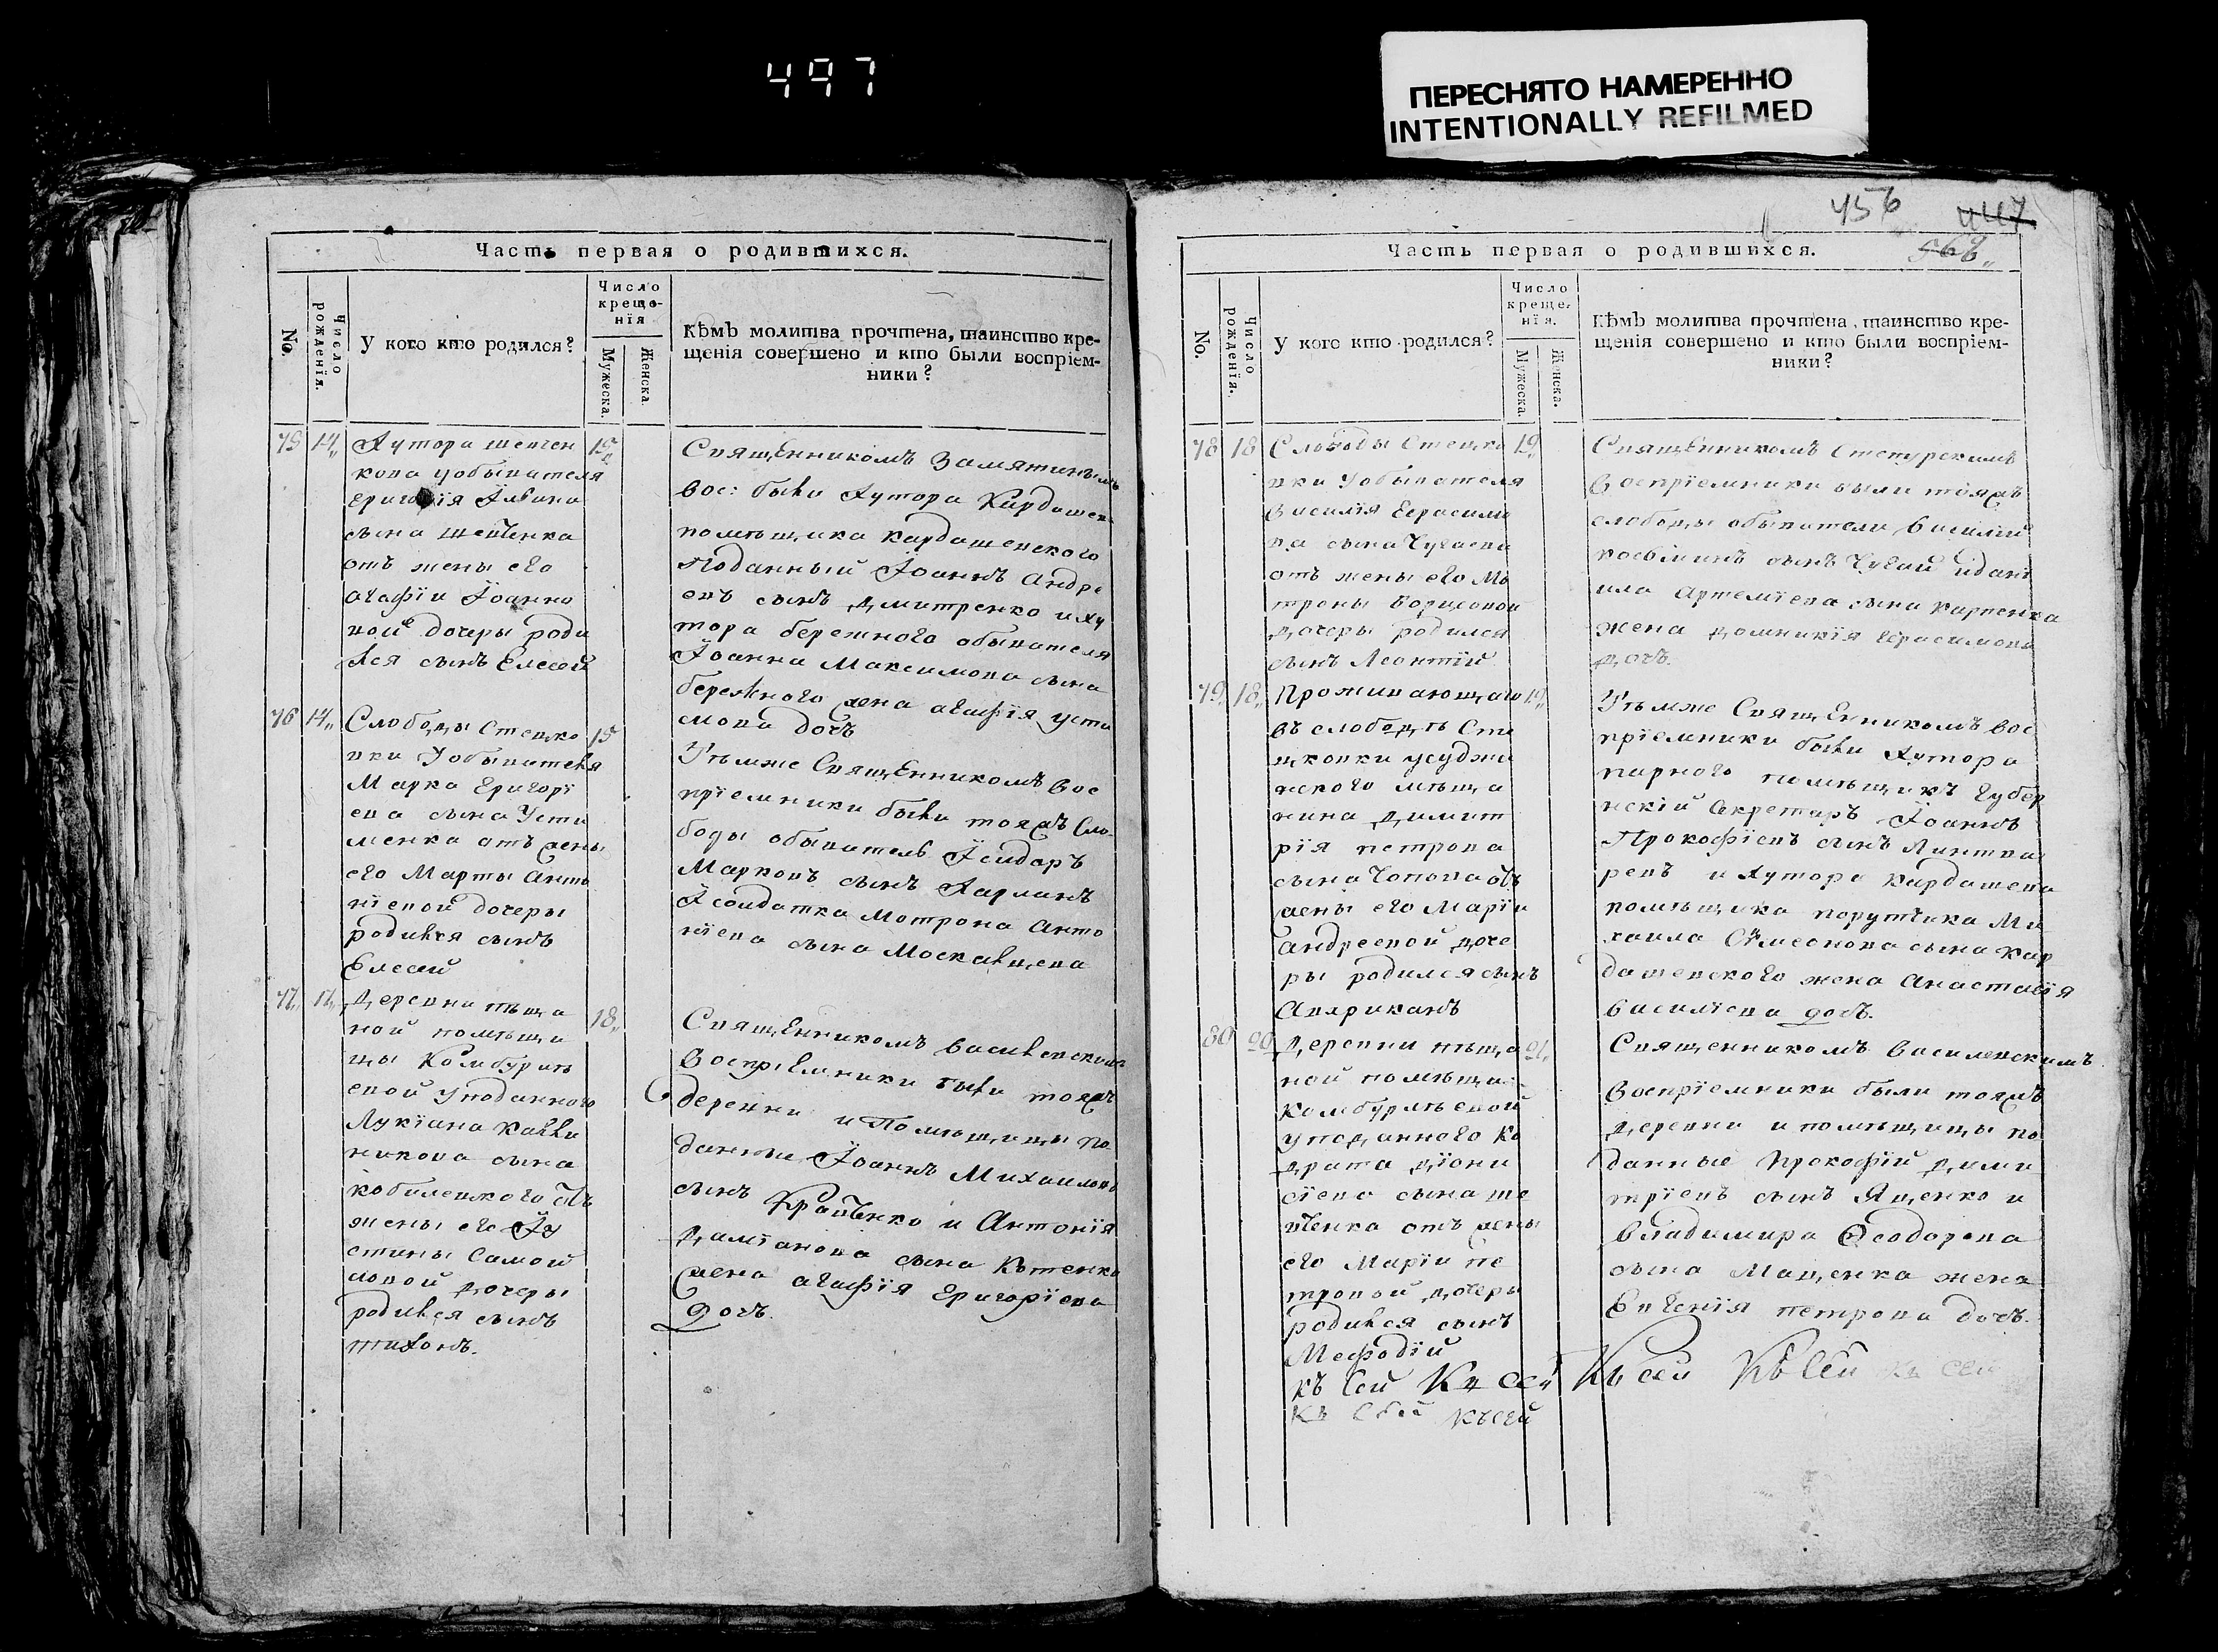 497
ПЕРЕСНЯТО НАМЕРЕННО
INTENTIONALLY REFILMED
Часть первая о родившихся.
No.
Число рожденія.
У кого кто родился?
Число
креще-
нія
Мужеска.
Женска.
Кѣмъ молитва прочтена, таинство кре-
щенія совершено и кто были воспріем-
ники?
75 14 Хутора шевчен 15
кова уобывателя
Григорія
сына шевченка
отъ жены его
агафіи Іоанно
вой дочеры роди
лся сынъ Елесей
Священникомъ Замятинымъ
вос: были Хутора Кардашев
помѣщика кардашевского
подданный Іоаннъ андре
евъ сынъ дмитренко иху
тора бережного обывателя
Іоанна Максимова сына
бережного жена агафія усти
мова дочь
76 14 Слободы Стецко 15
вки Уобывателя
Марка Григорі
ева сына Усти
менка отъ жены
его Марты анто
ніевой дочеры
родился сынъ
Елесей
Тѣмже Священникомъ вос
пріемники были тояжъ Сло
боды обыватель Ісидоръ
Марковъ сынъ Харланъ
Ісолдатка Мотрона анто
ніева сына Москавцева
77 17 деревни пѣща 18
ной помѣщи
цы Комбурлѣ
евой Уподанного
Лукіана
никова сына
кобилецкого отъ
жены его Іу
стины Самой
ловой дочеры
родился сынъ
тихонъ.
Священникомъ василевскимъ
Воспріемники были тояжъ
деревни и Помѣщицы по
данные Іоаннъ Михаиловъ
сынъ Кравченко и Антонія
даміанова сына
жена агафія Григоріева
дочь.
456 447
568
Часть первая о родившихся.
No.
Число рожденія.
У кого кто родился?
Число
креще-
нія.
Мужеска.
Женска.
Кѣмъ молитва прочтена, таинство кре-
щенія совершено и кто были воспріем-
ники?
78 18 Слободы Стецко 19
вки Уобывателя
василія Герасимо
ва сына Чугаева
отъ жены его Ма
троны
дочеры родился
сынъ Леонтій
Священникомъ
Воспріемники были тояжъ
слободы обыватели василій
сынъ Чугай идані
ила Артеміева сына карпенка
жена домникія Герасимова
дочь.
79 18 Проживающаго 19
въ слободѣ Сте
цковки усуджа
нского мѣща
нина димит
рія петрова
сына Попова отъ
жены его Маріи
андреевой доче
ры родился сынъ
Априканъ
Тѣмже Священникомъ вос
пріемники были Хутора
парного помѣщикъ Губер
нскій Секретаръ Іоаннъ
Прокофіевъ сынъ Линтва
ревъ и Хутора кардашева
помѣщика порутчика Ми
хаила Симеонова сына кар
дашевского жена анастасія
василіева дочь.
80 20 деревни пѣща 21
ной помѣщи
комбурлѣевой
уподанного Ко
драта діони
сіева сына ше
вченка отъ жены
его Маріи пе
тровой дочеры
родился сынъ
Мефодій
Священникомъ василевскимъ
Воспріемники были тояжъ
деревни и помѣщицы по
данные Прокофій дими
тріевъ сынъ Яценко и
владимира Феодорова
сына Маценка жена
Евгенія петрова дочь.
къ сей Къ сей Къ сей Къ сей къ сей
къ сей къ сей